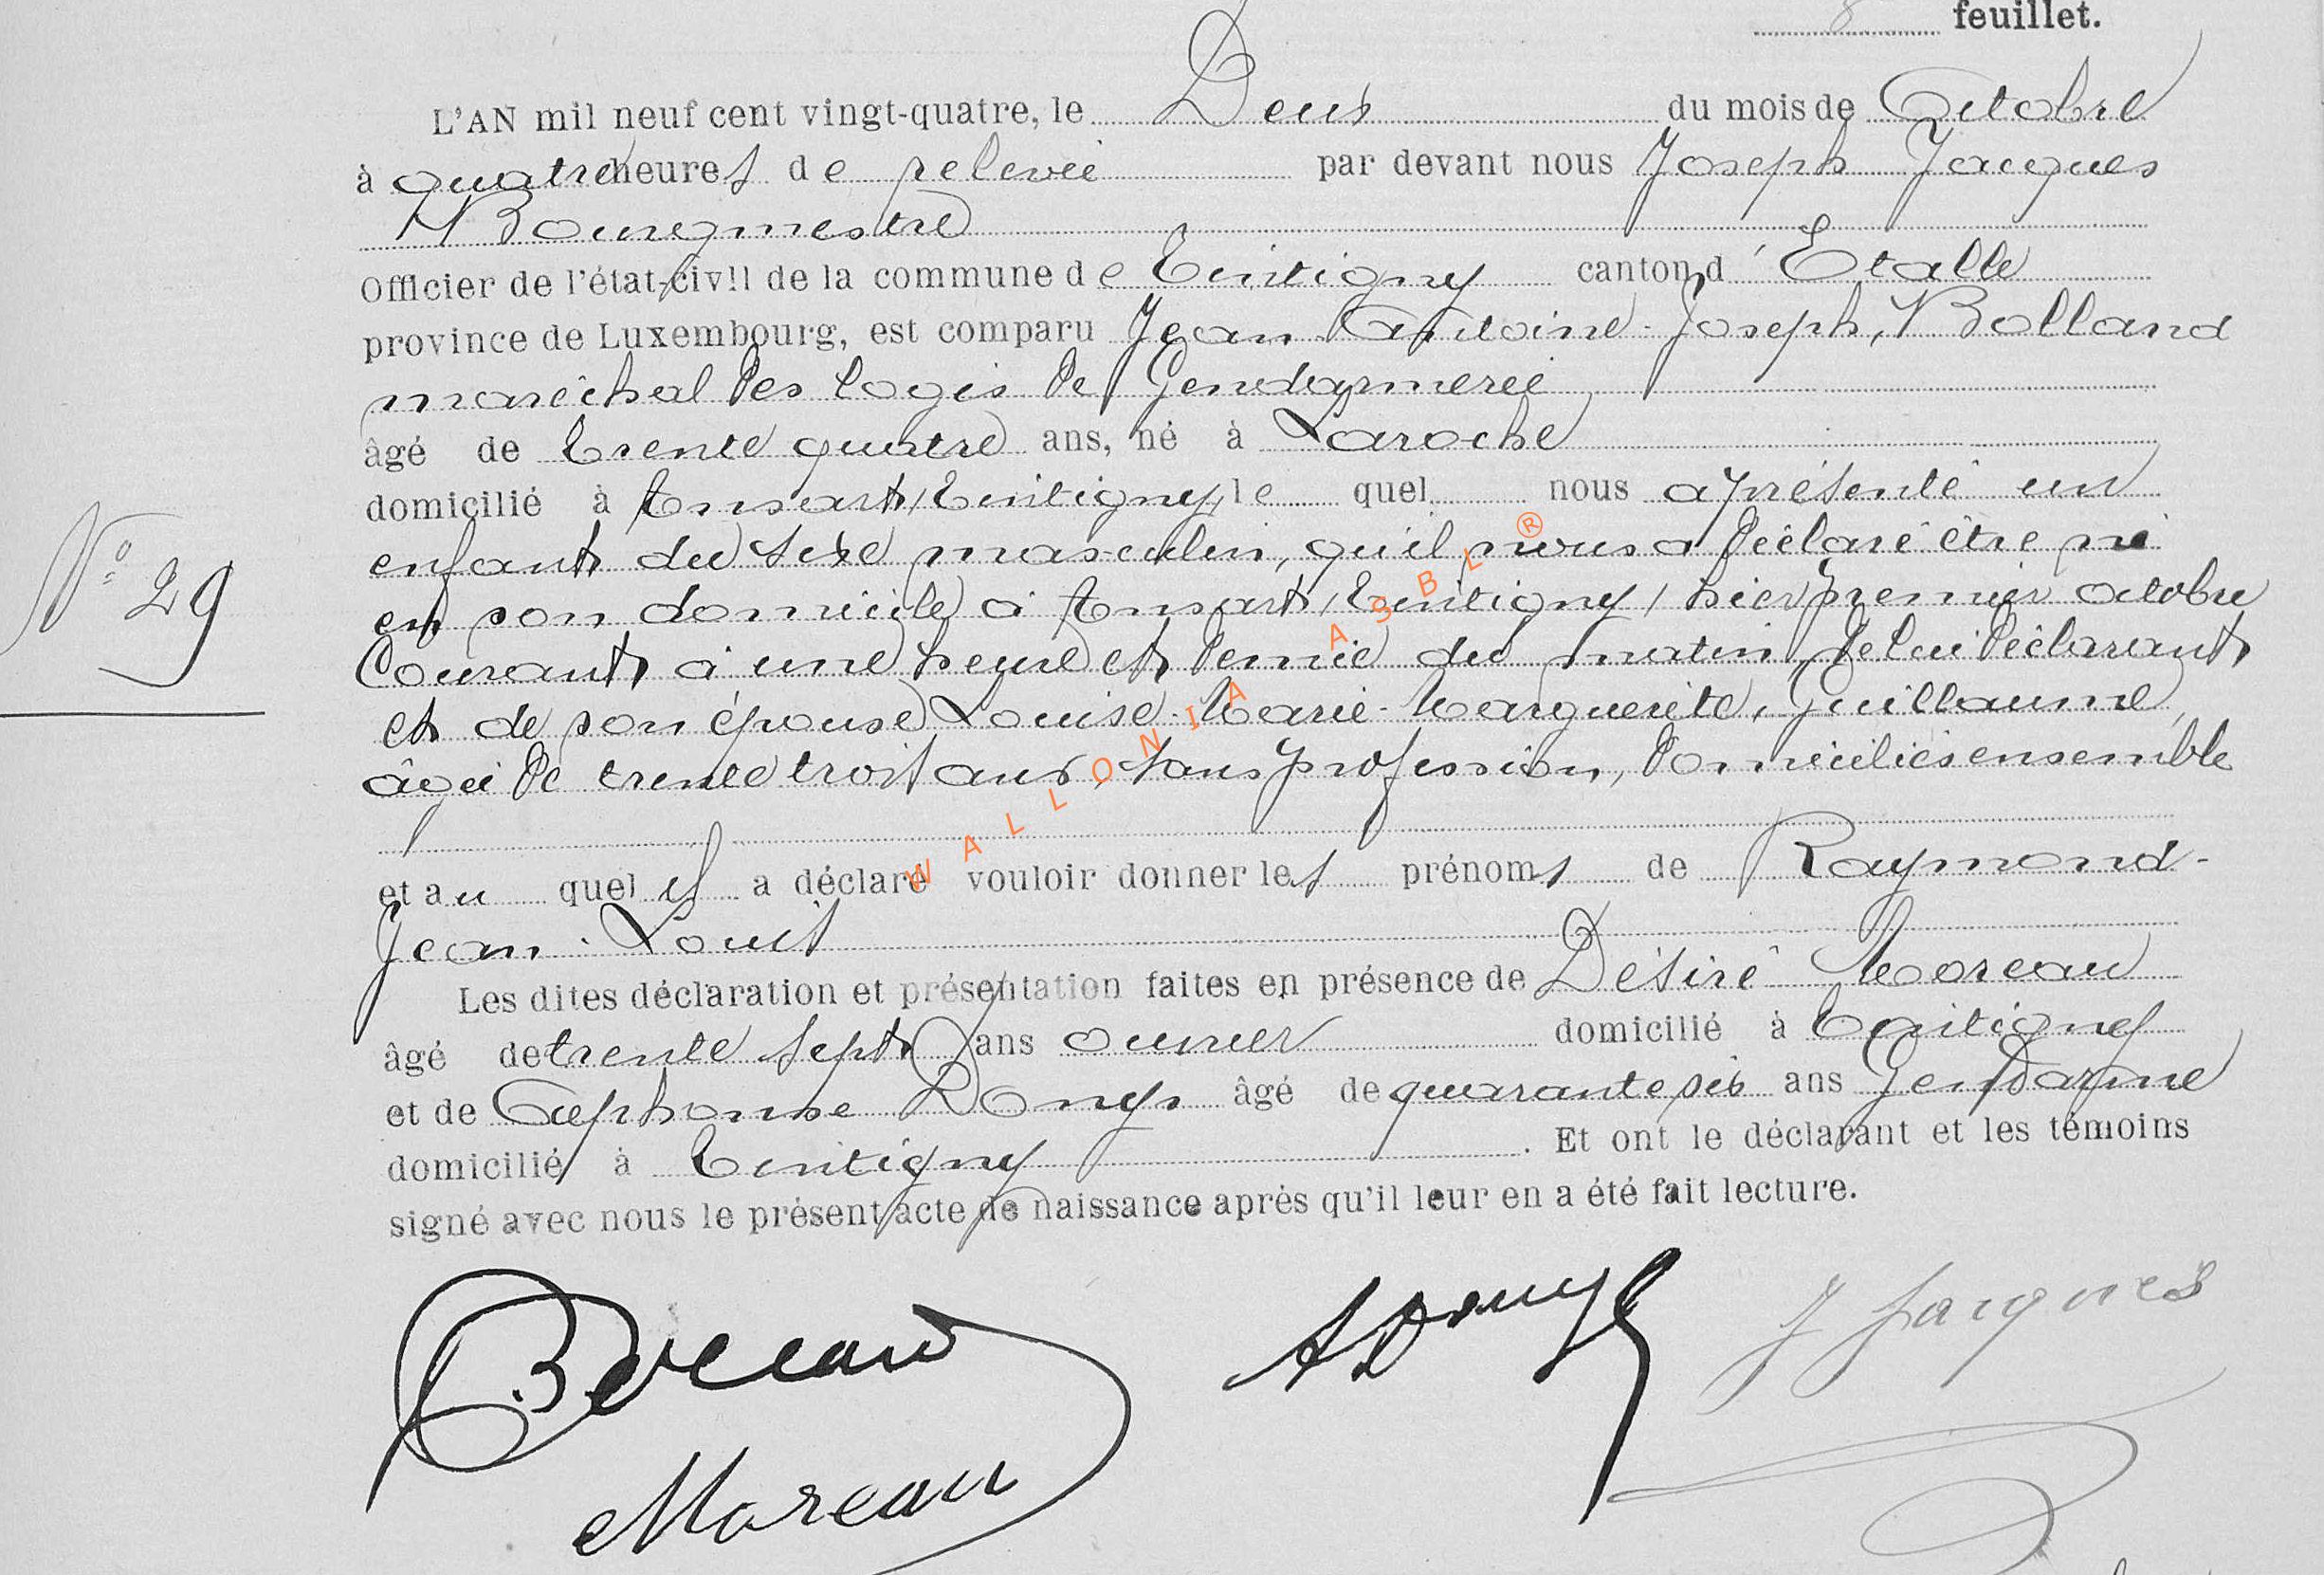 8 feuillet.
L'AN mil neuf cent vingt-quatre, le Deux du mois de Octobre
à quatre heures de relevée par devant nous Joseph Jacques
Bourgmestre
Officier de l'état-civil de la commune de Tintigny canton d'Etalle
province de Luxembourg, est comparu Jean-Antoine-Joseph, Bolland
maréchal des logis de Gendarmerie
âgé de trente quatre ans, né à Laroche
domicilié à Ansart, Tintigny, le quel nous a présenté un
enfant du sexe masculin, qu'il nous a déclaré être né
en son domicile à Ansart, Tintigny, hier premier octobre
Courant à une heure et demie du matin de lui déclarant
N° 29
et de son épouse Louise-Marie-Marguerite, Guillaume,
âgée de trente trois ans, sans profession, domiciliés ensemble
et au quel il a déclaré vouloir donner les prénoms de Raymond-
Jean-Louis
Les dites déclaration et présentation faites en présence de Désiré Moreau
âgé de trente sept ans ouvrier domicilié à Tintigny
et de Alphonse Dony âgé de quarante six ans Gendarme
domicilié à Tintigny. Et ont le déclarant et les témoins
signé avec nous le présent acte de naissance après qu'il leur en a été fait lecture.
Bolland ADony J Jacques
Moreau
WALLONIA ASBL ®